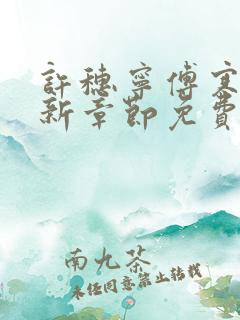 許穗寧傅寒
新章節免費
南九茶
未經同意禁止轉載